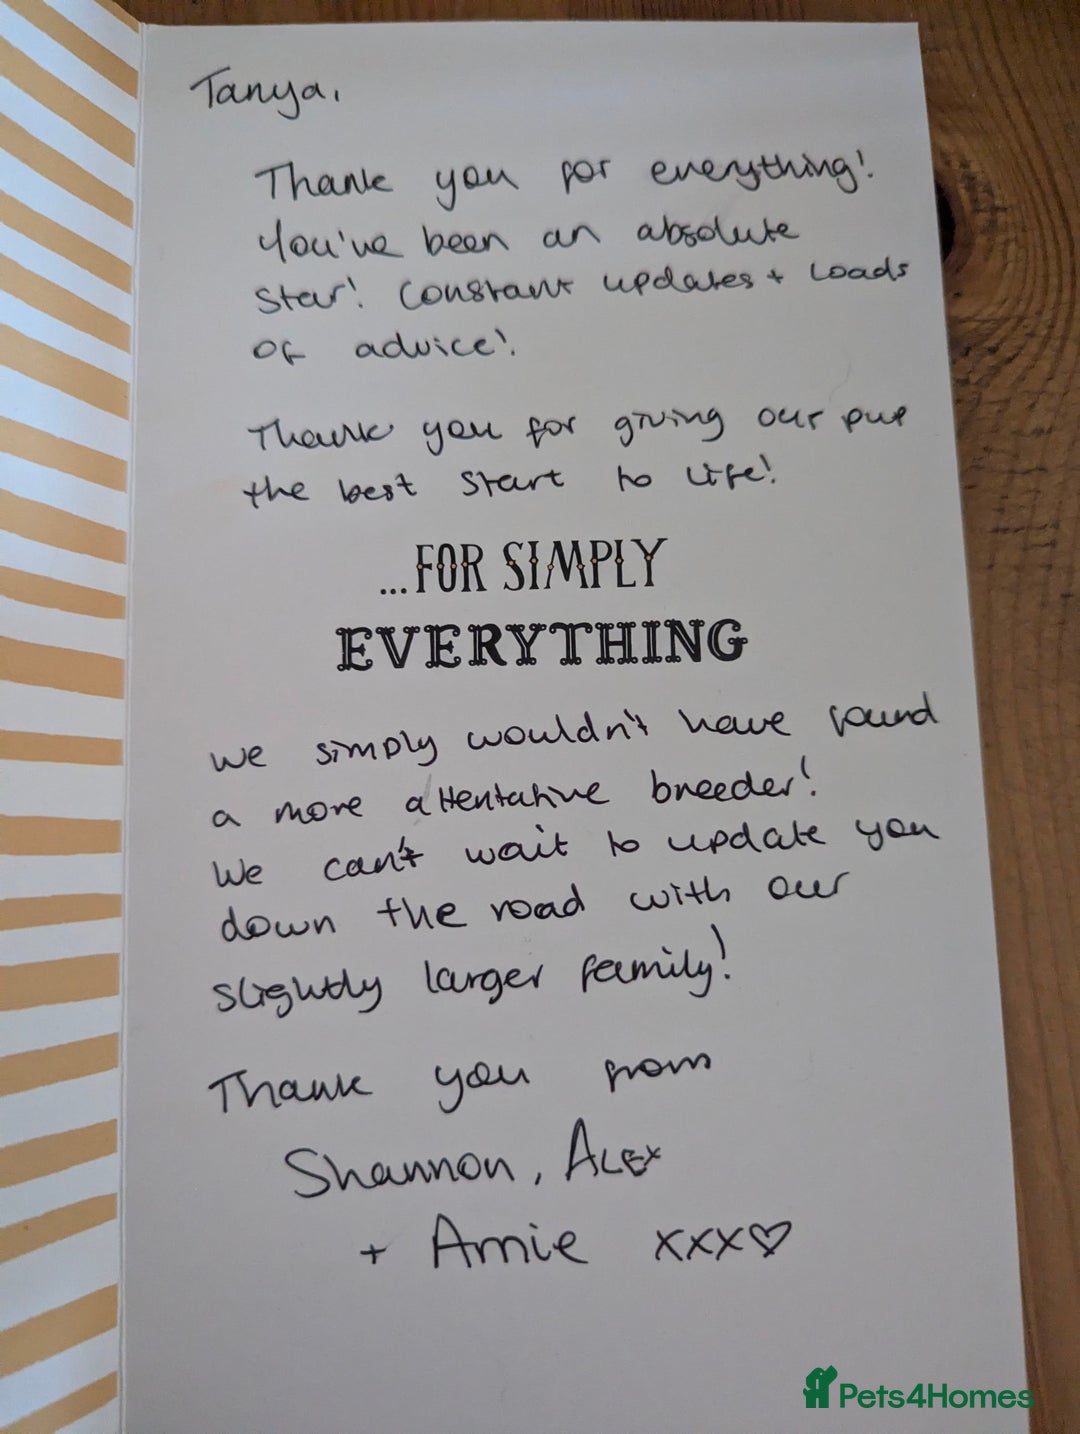 Tanya,
Thank you for everything!
You've been an absolute
Star! Constant updates + Loads
of advice!
Thank you for giving our pup
the best start to life!
...FOR SIMPLY
EVERYTHING
We simply wouldn't have found
a more attentative breeder!
We can't wait to update you
down the road with our
slightly larger family!
Thank you from
Shannon, ALEX
+ Arnie xxx♡
Pets4Homes